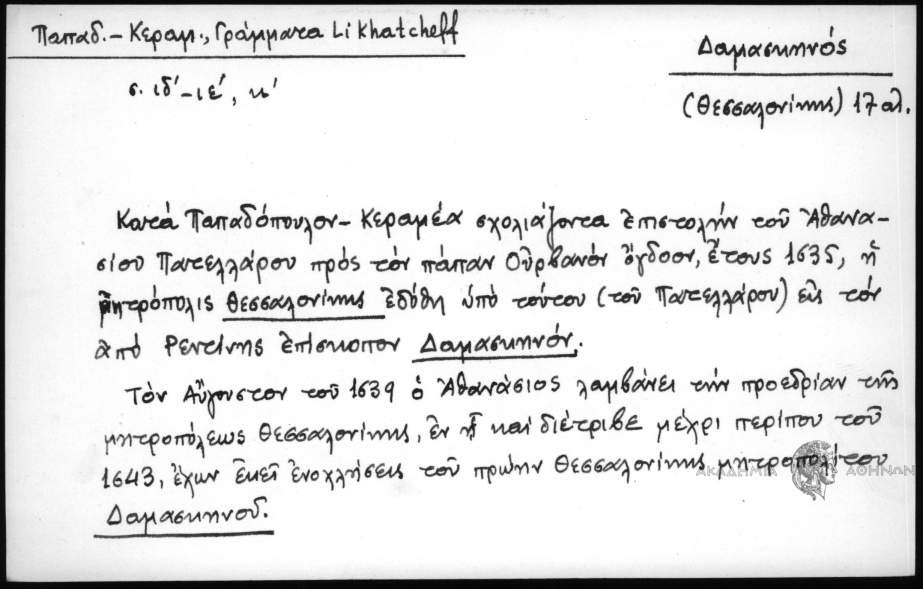 Παπαδ.-Κεραμ., Γράμματα Likhatcheff
σ. ιδ'-ιε', κ'
Δαμασκηνός
(Θεσσαλονίκης) 17 αἰ.
Κατά Παπαδόπουλον-Κεραμέα σχολιάζοντα ἐπιστολήν τοῦ Ἀθανα-
σίου Πατελλάρου πρός τόν πάπαν Οὐρβανόν ὄγδοον, ἔτους 1635, ἡ
μητρόπολις Θεσσαλονίκης ἐδόθη ὑπό τούτου (τοῦ Πατελλάρου) εἰς τόν
ἀπό Ρεντίνης ἐπίσκοπον Δαμασκηνόν.
Τόν Αὔγουστον τοῦ 1639 ὁ Ἀθανάσιος λαμβάνει τήν προεδρίαν τῆς
μητροπόλεως Θεσσαλονίκης, ἐν ᾗ καί διέτριβε μέχρι περίπου τοῦ
1643, ἔχων ἐκεῖ ἐνοχλήσεις τοῦ πρώην Θεσσαλονίκης μητροπολίτου
Δαμασκηνοῦ.
ΑΚΑΔΗΜΙΑ ΑΘΗΝΩΝ